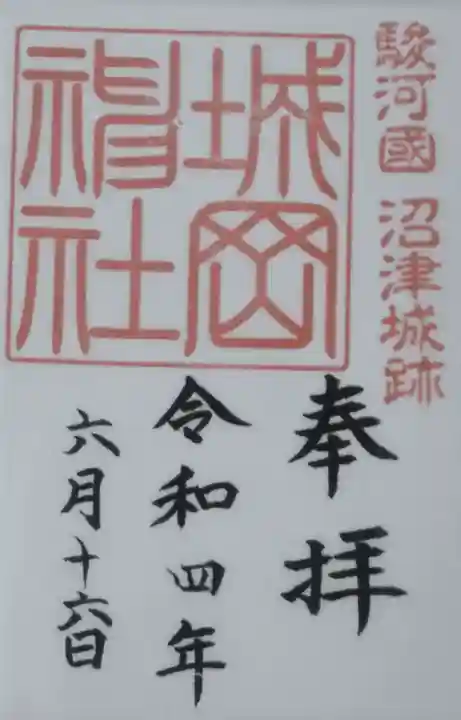 駿河國 沼津城跡
城岡
神社
奉拝
令和四年
六月十六日